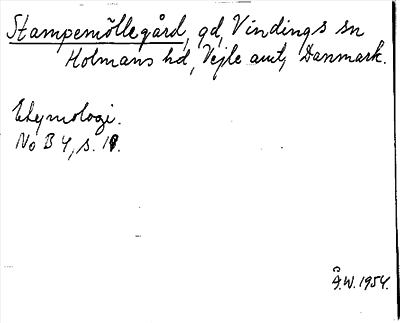 Stampemöllegård, gd, Vindings sn
Holmans hd, Vejle amt, Danmark.
Etymologi.
No B 4, s. 19.
Å.W. 1954.